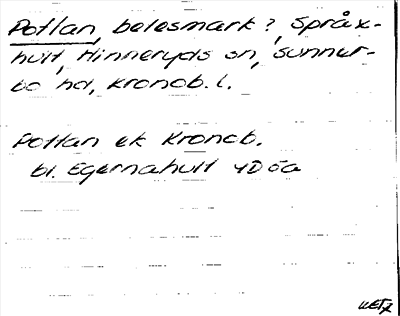 Potlan, betesmark?, Språx-
hult, Hinneryds sn, Sunner-
bo hd, Kronob. l.
Pottan ek Kronob.
bl. Egernahult 4D öa